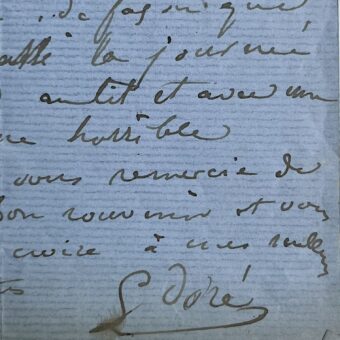 passé la journée
au lit et avec une
horrible
vous remercie de
bon souvenir et vous
croire à mes
G Doré